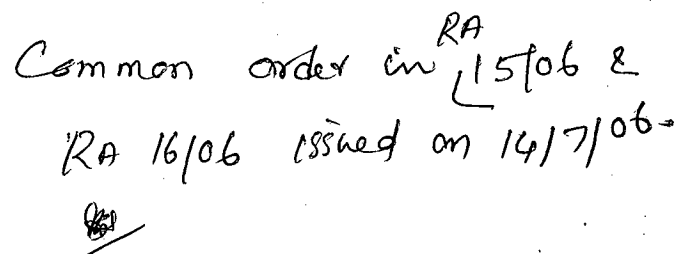 Common order in RA 15/06 &
RA 16/06 issued on 14/7/06.